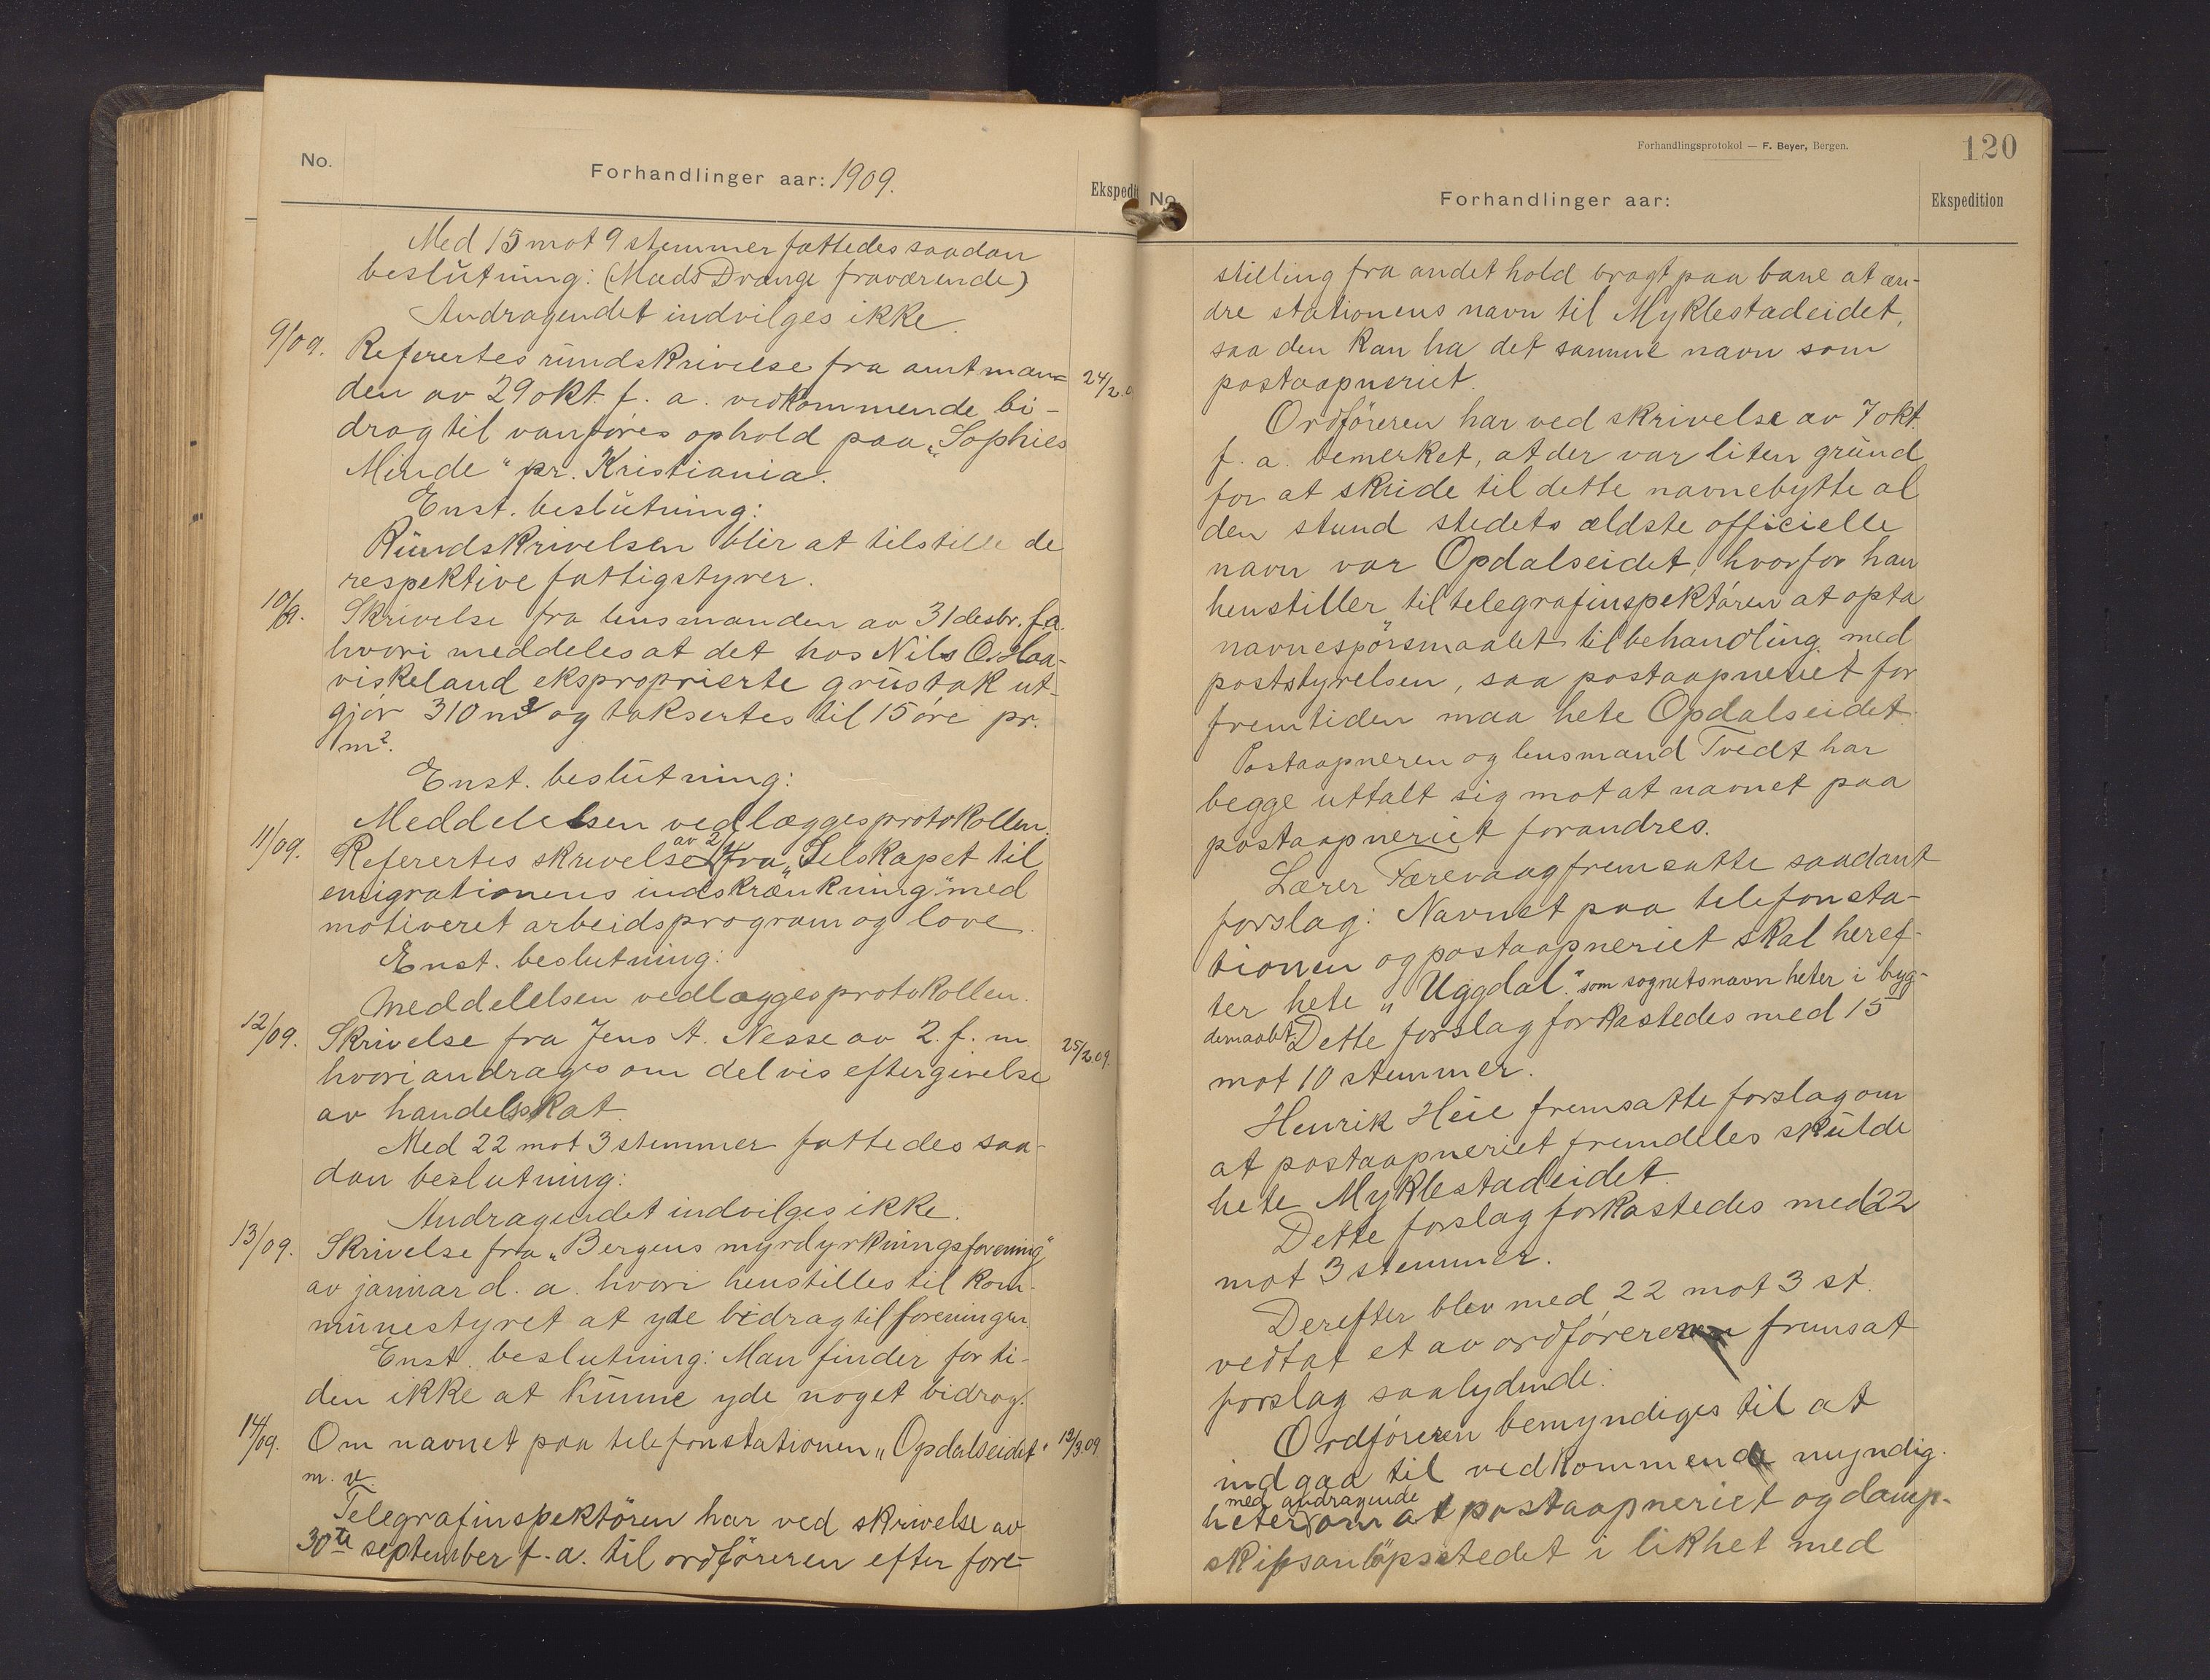 No.
Forhandlinger aar: 1909.
Ekspedit
Med 15 mot 9 stemmer fattedes saadan
beslutning: (Mads Drange fraværende)
Andragendet indvilges ikke.
9/09.
Referertes rundskrivelse fra amtman=
24/2.0
den av 29 okt. f. a. vedkommende bi-
drag til vanføres ophold paa „Sophies
Minde" pr. Kristiania.
Enst. beslutning:
Rundskrivelsen blir at tilstille de
respektive fattigstyrer.
10/09.
Skrivelse fra lensmanden av 31 desbr. f.a.
hvori meddeles at det hos Nils O. Haa-
viskeland eksproprierte grustak ut-
gjør 310 m2 og taksertes til 15 øre pr.
m2.
Enst. beslutning:
Meddelelsen vedlægges protokollen.
11/09.
Referertes skrivelse av 2/1 fra „Selskapet til
emigrationens indskrænkning" med
motiveret arbeidsprogram og love.
Enst. beslutning:
Meddelelsen vedlægges protokollen.
12/09.
Skrivelse fra Jens A. Nesse av 2. f. m.
25/2.09.
hvori andrages om delvis eftergivelse
av handelsskat.
Med 22 mot 3 stemmer fattedes saa-
dan beslutning:
Andragendet indvilges ikke.
13/09.
Skrivelse fra „Bergens myrdyrkningsforening"
av januar d. a. hvori henstilles til kom-
munestyret at yde bidrag til foreningen.
Enst. beslutning: Man finder for ti-
den ikke at kunne yde noget bidrag.
14/09.
Om navnet paa telefonstationen „Opdalseidet"
12/3.09
m. v.
Telegrafinspektøren har ved skrivelse av
30te september f. a. til ordføreren efter fore-
Forhandlingsprotokol — F. Beyer, Bergen.
120
No.
Forhandlinger aar:
Ekspedition
stilling fra andet hold bragt paa bane at æn-
dre stationens navn til Myklestadeidet,
saa den kan ha det samme navn som
postaapneriet.
Ordføreren har ved skrivelse av 7 okt.
f. a. bemerket, at der var liten grund
for at skride til dette navnebytte al
den stund stedets ældste officielle
navn var Opdalseidet, hvorfor han
henstiller til telegrafinspektøren at opta
navnespørsmaalet til behandling med
poststyrelsen, saa postaapneriet for
fremtiden maa hete Opdalseidet.
Postaapneren og lensmand Tvedt har
begge uttalt sig mot at navnet paa
postaapneriet forandres.
Lærer Færevaag fremsatte saadant
forslag: Navnet paa telefonsta-
tionen og postaapneriet skal heref-
ter hete „Uggdal" som sognets navn heter i byg-
demaalet. Dette forslag forkastedes med 15
mot 10 stemmer.
Henrik Heie fremsatte forslag om
at postaapneriet fremdeles skulde
hete Myklestadeidet.
Dette forslag forkastedes med 22
mot 3 stemmer.
Derefter blev med 22 mot 3 st.
vedtat et av ordføreren fremsat
forslag saalydende:
Ordføreren bemyndiges til at
indgaa til vedkommende myndig-
heter med andragende om at postaapneriet og damp-
skipsanløpsstedet i likhet med